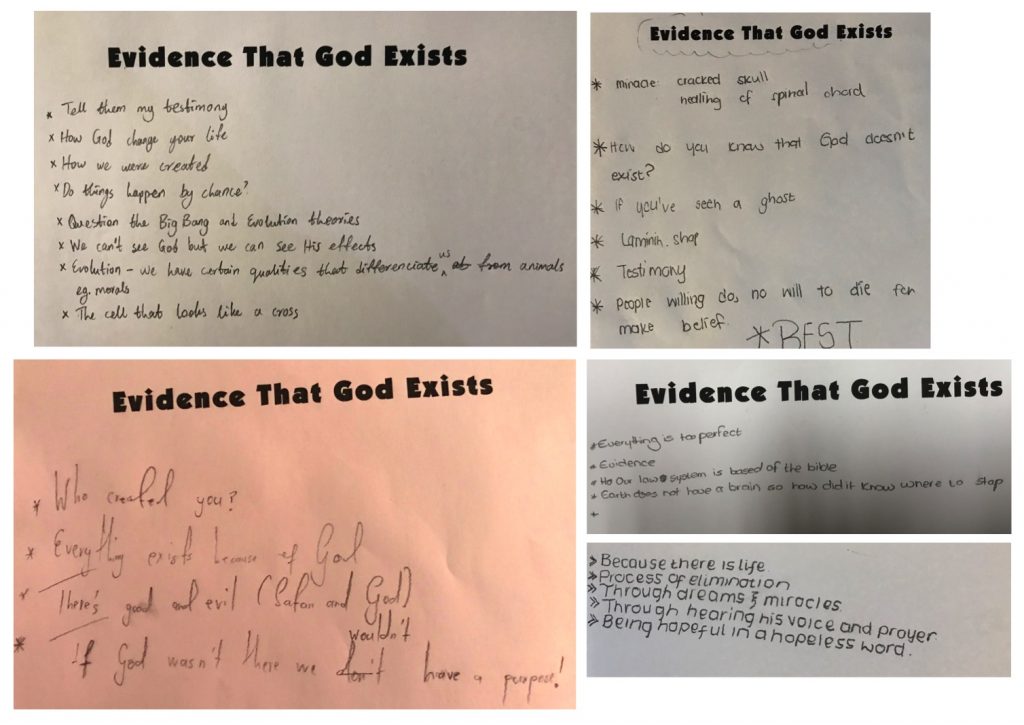 Evidence That God Exists
* Tell them my testimony
x How God change your life
x How we were created
x Do things happen by chance?
x Question the Big Bang and Evolution theories
x We can't see God but we can see His effects
x Evolution - we have certain qualities that differenciate us from animals
eg. morals
x The cell that looks like a cross
Evidence That God Exists
* miracle: cracked skull
healing of spinal chord
* How do you know that God doesn't
exist?
* If you've seen a ghost
* Laminin. shop
* Testimony
* People willing do, no will to die for
make belief.
* BEST
Evidence That God Exists
* Who created you?
* Everything exists because of God
* There's good and evil (Satan and God)
* If God wasn't there we wouldn't have a purpose!
Evidence That God Exists
* Everything is too perfect
* Evidence
* Our law system is based of the bible
* Earth does not have a brain so how did it know where to stop
+
» Because there is life
» Process of elimination
» Through dreams & miracles.
» Through hearing his voice and prayer
» Being hopeful in a hopeless word.